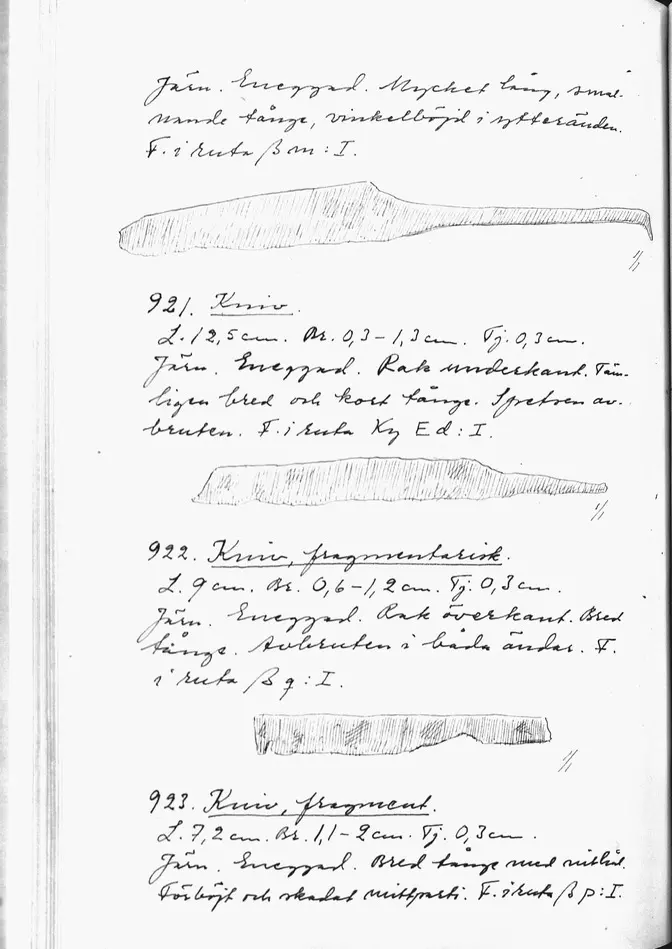 Järn. Eneggad. Mycket lång, smal-
nande tånge, vinkelböjd i ytteränden.
F. i ruta ß m : I.
1/1
921. Kniv.
L. 12,5 cm. Br. 0,3-1,3 cm. Tj. 0,3 cm.
Järn. Eneggad. Rak underkant. Täm-
ligen bred och kort tånge. Spetsen av-
bruten. F. i ruta Ky E d : I.
1/1
922. Kniv, fragmentarisk.
L. 9 cm. Br. 0,6-1,2 cm. Tj. 0,3 cm.
Järn. Eneggad. Rak överkant. Bred
tånge. Avbruten i båda ändar. F.
i ruta ß q : I.
1/1
923. Kniv, fragment.
L. 7,2 cm. Br. 1,1-2 cm. Tj. 0,3 cm.
Järn. Eneggad. Bred tånge med nithål.
Förböjt och skadat mittparti. F. i ruta ß p : I.